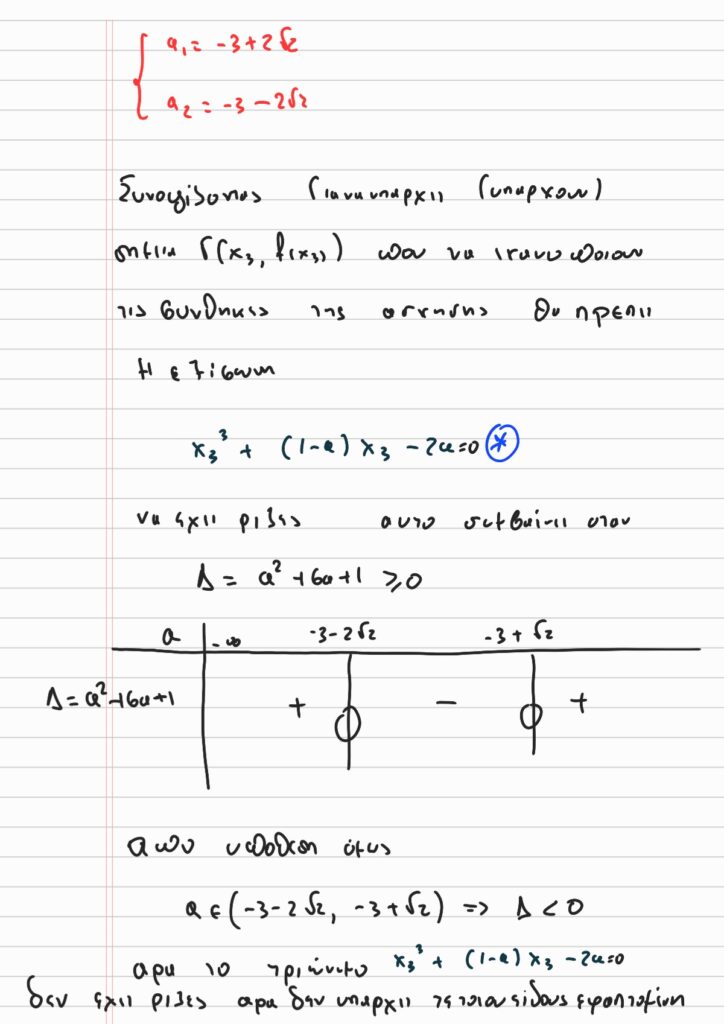 a₁ = -3+2√2
a₂ = -3-2√2
Συνοψίζοντας Για να υπάρχει (υπάρχουν)
σημεία Γ(x₃, f(x₃)) που να ικανοποιουν
τις συνθηκες της ασκησης θα πρεπει
Η εξίσωση
x₃³ + (1-a) x₃ - 2a=0 *
να εχει ριζες αυτο συμβαίνει οταν
Δ = a² +6a+1 ≥0
a -∞ -3-2√2 -3+√2
Δ=a²+6a+1 + - +
απο υποθεση όμως
a ∈ (-3-2√2, -3+√2) => Δ < 0
αρα το τριώνυμο x₃³ + (1-a) x₃ - 2a=0
δεν εχει ριζες αρα δεν υπαρχει τετοιου είδους εφαπτομένη